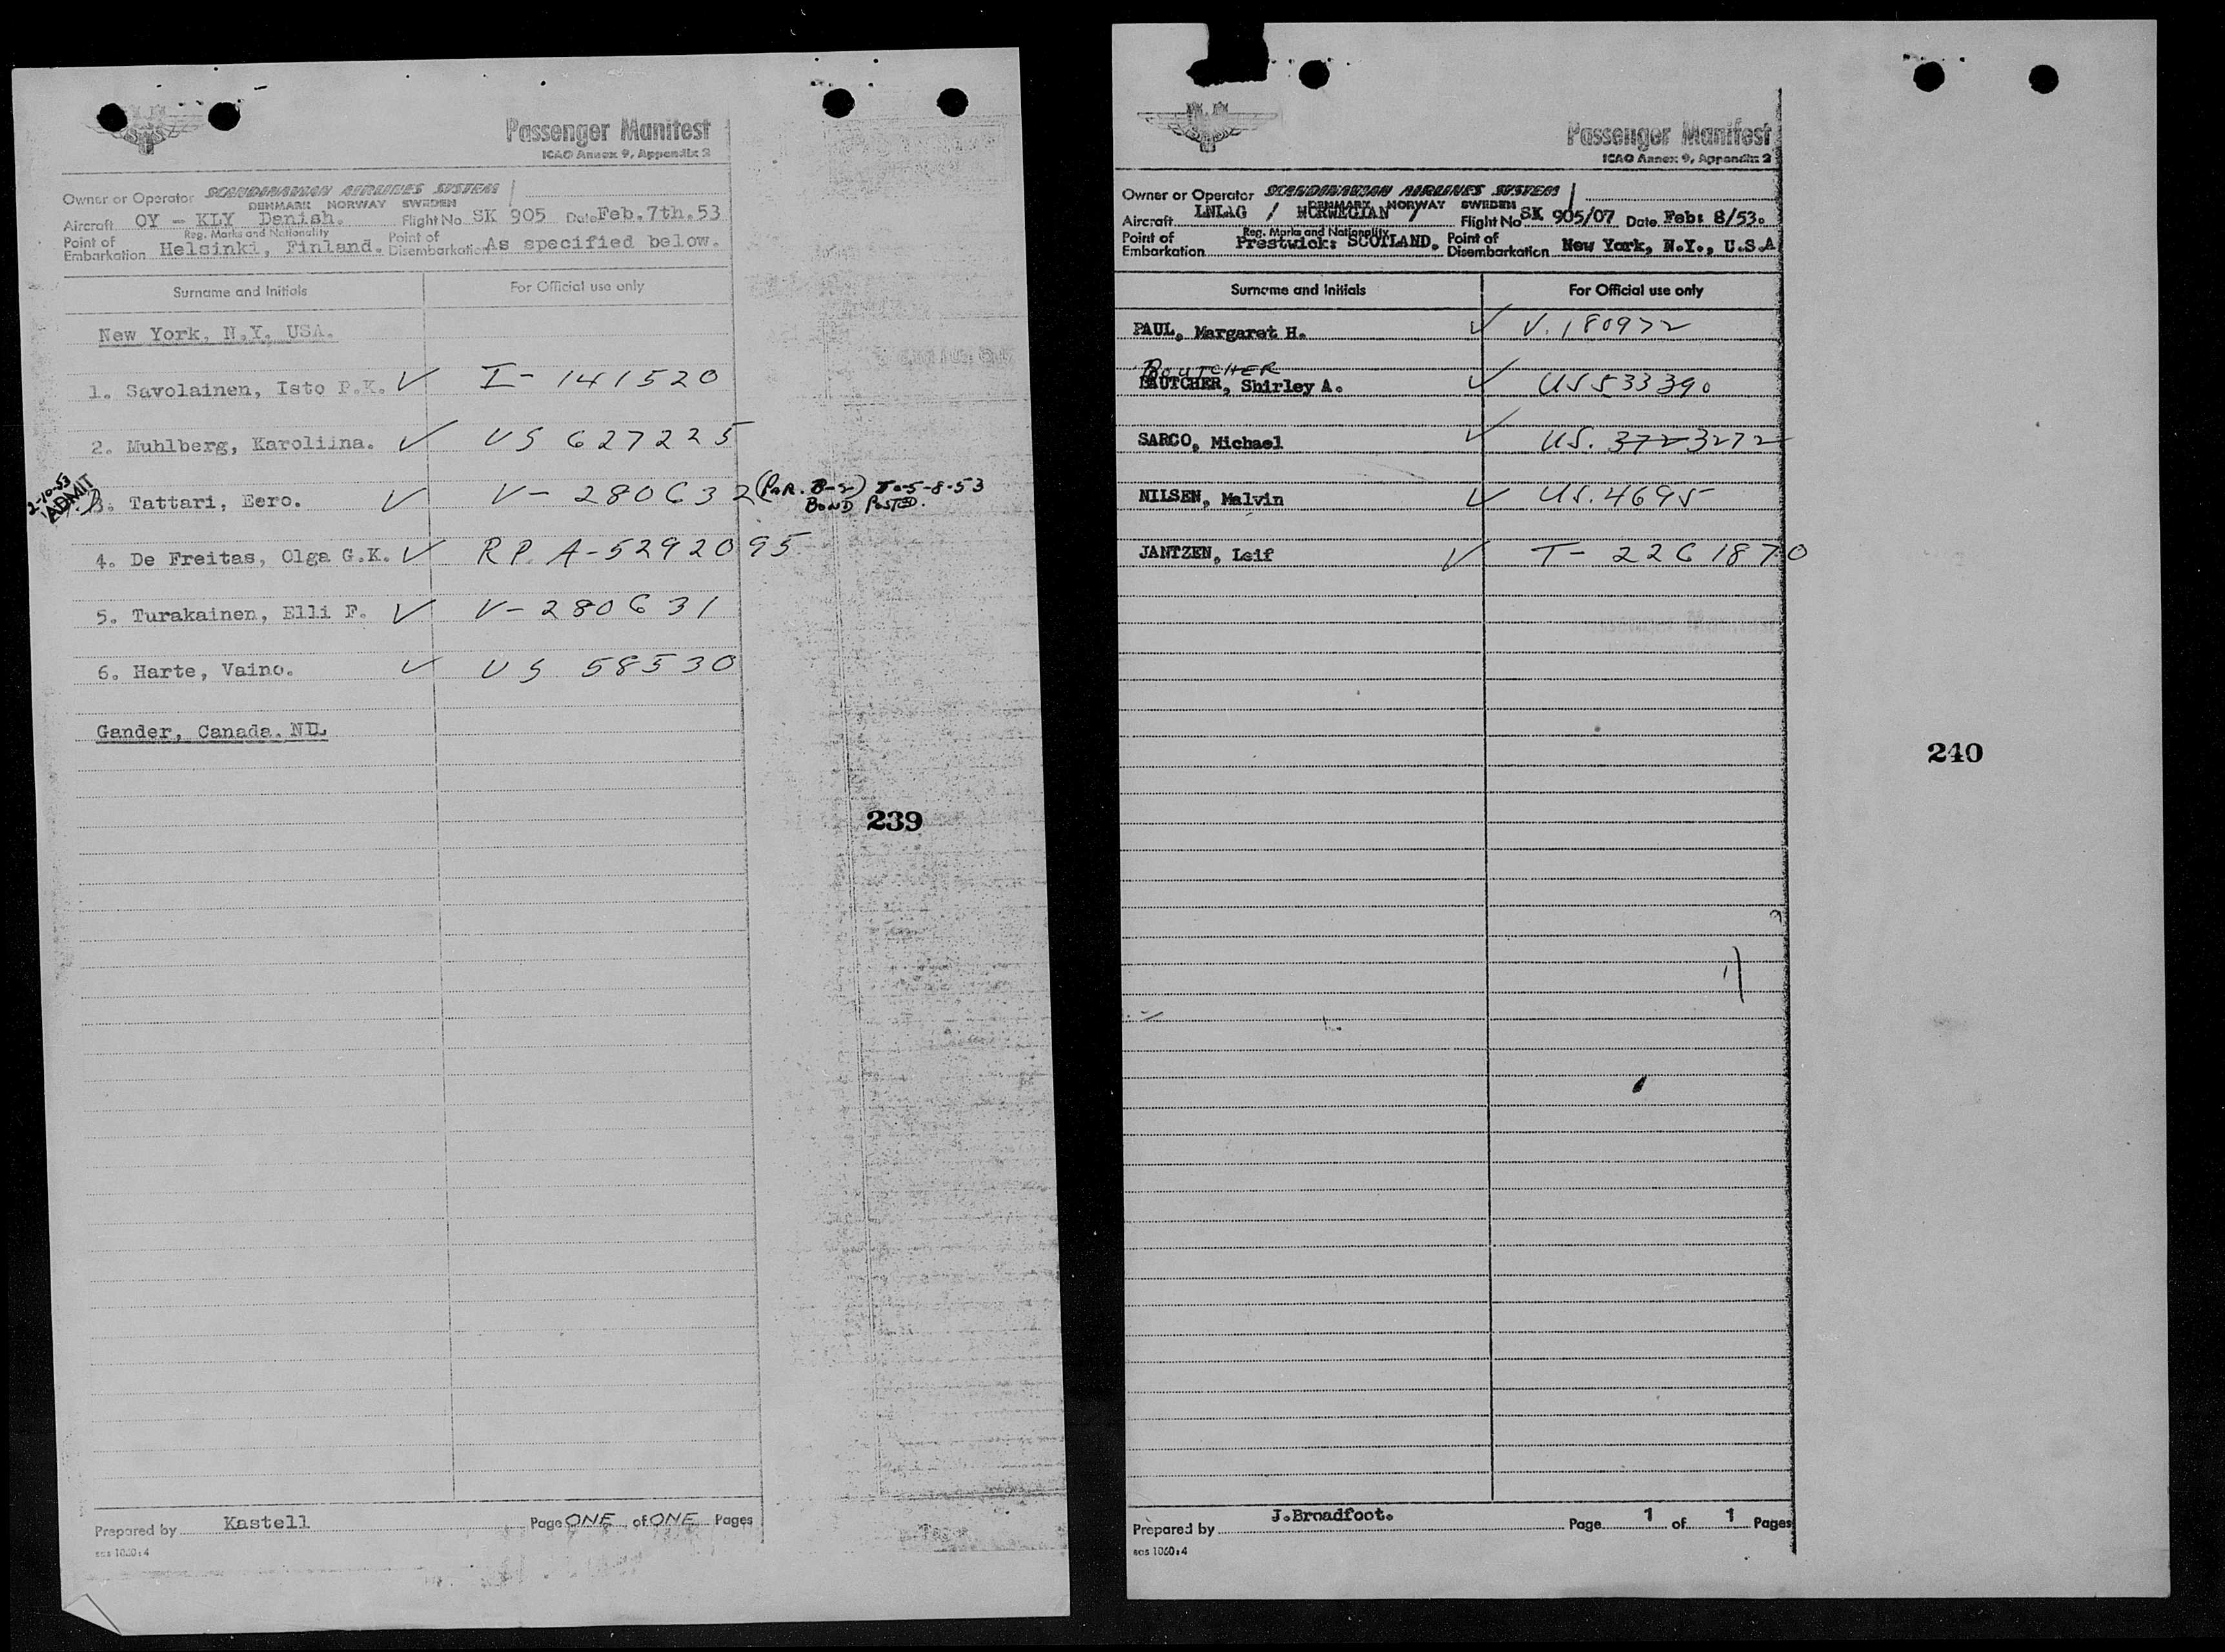 Passenger Manifest
ICAO Annex 9, Appendix 2
Owner or Operator SCANDINAVIAN AIRLINES SYSTEM
DENMARK NORWAY SWEDEN
Aircraft OY - KLY Danish. Flight No SK 905 Date Feb. 7th. 53
Reg. Marks and Nationality
Point of Embarkation Helsinki, Finland. Point of Disembarkation As specified below.
Surname and Initials For Official use only
New York, N.Y. USA.
1. Savolainen, Isto P.K. ✓ I - 141520
2. Muhlberg, Karoliina. ✓ US 627225
2-10-53
ADMIT
3. Tattari, Eero. ✓ V - 280632 (PAR. B-2) To-5-8-53
BOND POSTED.
4. De Freitas, Olga G.K. ✓ R.P. A-5292095
5. Turakainen, Elli F. ✓ V - 280631
6. Harte, Vaino. ✓ US 58530
Gander, Canada. NIL
239
Prepared by Kastell Page ONE of ONE Pages
sas 1060:4
Passenger Manifest
ICAO Annex 9, Appendix 2
Owner or Operator SCANDINAVIAN AIRLINES SYSTEM
DENMARK NORWAY SWEDEN
Aircraft LNLAG / NORWEGIAN / Flight No SK 905/07 Date Feb: 8/53.
Reg. Marks and Nationality
Point of Embarkation Prestwick: SCOTLAND. Point of Disembarkation New York, N.Y., U.S.A
Surname and Initials For Official use only
PAUL, Margaret H. ✓ V. 180972
BOUTCHER
BAUTCHER, Shirley A. ✓ US 533390
SARCO, Michael ✓ US. 372 3272
NILSEN, Malvin ✓ US. 4695
JANTZEN, Leif ✓ T - 2261870
240
Prepared by J.Broadfoot. Page 1 of 1 Pages
sas 1060:4